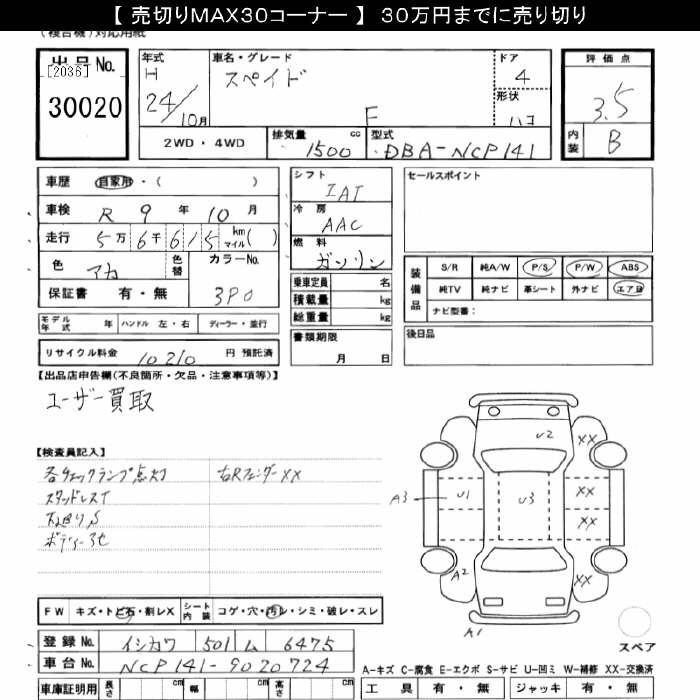 【 売切りMAX30コーナー 】 30万円までに売り切り
(複合機)対応用紙
出品No.
[2036]
30020
年式
H
24/10月
車名・グレード
スペイド
F
ドア
4
形状
ハコ
評価点
3.5
内装
B
2WD・4WD
排気量
1500 cc
型式
DBA-NCP141
車歴 自家用・( )
車検 R 9 年 10 月
走行 5万 6千 615 km マイル( )
色 アカ 色替
カラーNo.
3P0
保証書 有・無
シフト
IAT
冷房
AAC
燃料
ガソリン
乗車定員 名
積載量 kg
総重量 kg
書類期限
月 日
セールスポイント
装備品
S/R 純A/W P/S P/W ABS
純TV 純ナビ 革シート 外ナビ エアB
ナビ型番:
後日品
モデル年式 年 ハンドル 左・右 ディーラー・並行
リサイクル料金 10210 円 預託済
【出品店申告欄(不良箇所・欠品・注意事項等)】
ユーザー買取
【検査員記入】
各チェックランプ点灯 右Rフェンダー××
スタッドレスT
下廻りS
ボディー3セ
U2
XX
A3
U1
U3
XX
XX
A2
XX
A1
スペア
FW キズ・トビ石・割レX シート内装 コゲ・穴・汚レ・シミ・破レ・スレ
登録No. イシカワ 501 ム 6475
車台No. NCP141-9020724
車庫証明用 長さ cm 幅 cm 高さ cm
A-キズ C-腐食 E-エクボ S-サビ U-凹ミ W-補修 XX-交換済
工具 有・無 ジャッキ 有・無